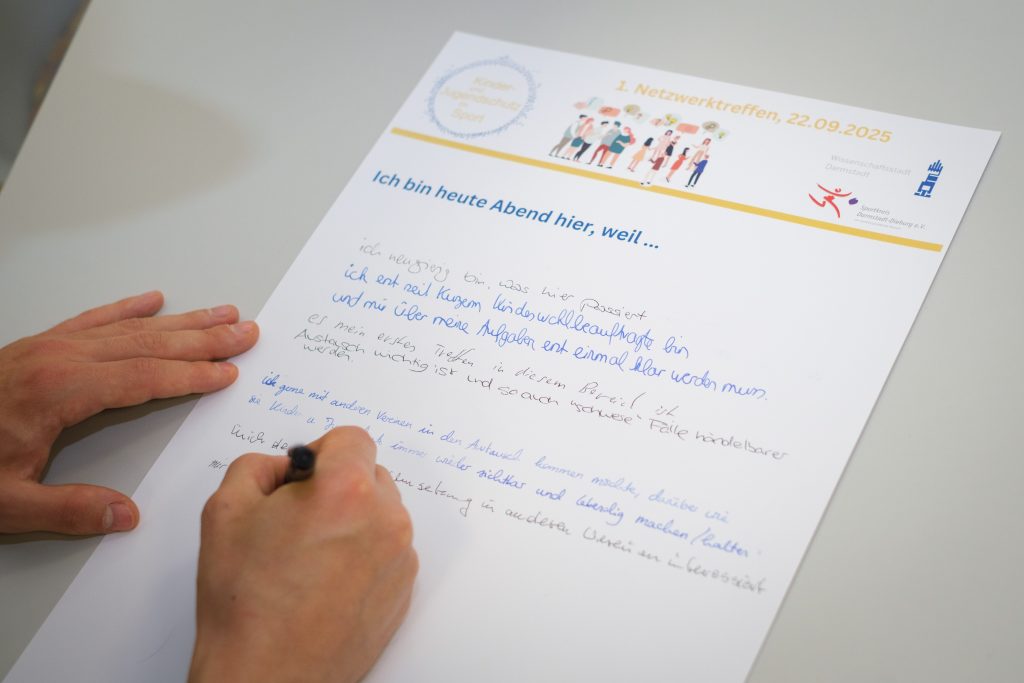 Kinder-
und
Jugendschutz
im
Sport
1. Netzwerktreffen, 22.09.2025
Wissenschaftsstadt
Darmstadt
Sportkreis
Darmstadt-Dieburg e.V.
Ich bin heute Abend hier, weil ...
ich neugierig bin, was hier passiert
ich erst seit Kurzem Kindeswohlbeauftragte bin
und mir über meine Aufgaben erst einmal klar werden muss.
es mein erstes Treffen in diesem Bereich ist
Austausch wichtig ist und so auch "schwere" Fälle händelbarer
werden.
ich gerne mit anderen Vereinen in den Austausch kommen möchte, darüber wie
wir Kinder u. immer wieder sichtbar und lebendig machen/halten
mich die setzung in anderen Vereinen interessiert
mir